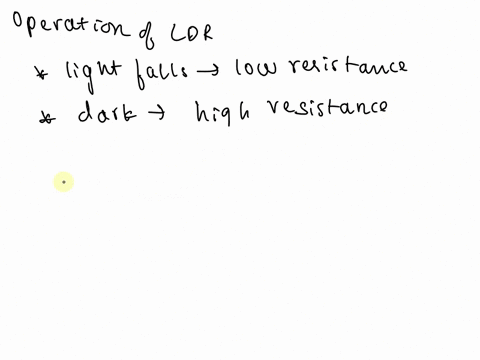 Operation of LDR
* light falls → low resistance
* dark → high resistance